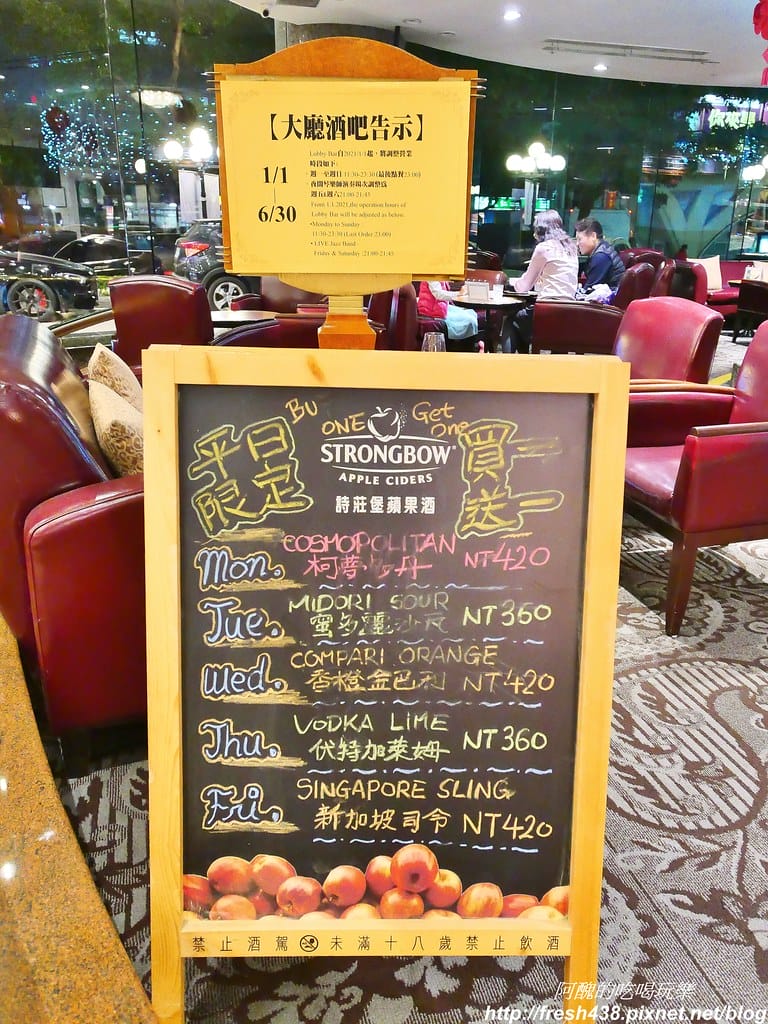 【大廳酒吧告示】
1/1
|
6/30
Lobby Bar自2021/1/1起，將調整營業
時段如下:
週一至週日 11:30-23:30 (最後點餐23:00)
夜間琴樂師演奏場次調整為
週五&週六21:00-21:45
From 1.1.2021,the operation hours of
Lobby Bar will be adjusted as below.
•Monday to Sunday
11:30-23:30 (Last Order 23:00)
• LIVE Jazz Band
Friday & Saturday :21:00-21:45
平日
限定
BU ONE Get One
買一
送一
STRONGBOW
APPLE CIDERS
詩莊堡蘋果酒
Mon. COSMOPOLITAN
柯夢波丹 NT420
Tue. MIDORI SOUR
蜜多麗沙瓦 NT350
Wed. COMPARI ORANGE
香橙金巴利 NT420
Thu. VODKA LIME
伏特加萊姆 NT360
Fri. SINGAPORE SLING
新加坡司令 NT420
禁止酒駕 未滿十八歲禁止飲酒
阿醜的吃喝玩樂
http://fresh438.pixnet.net/blog